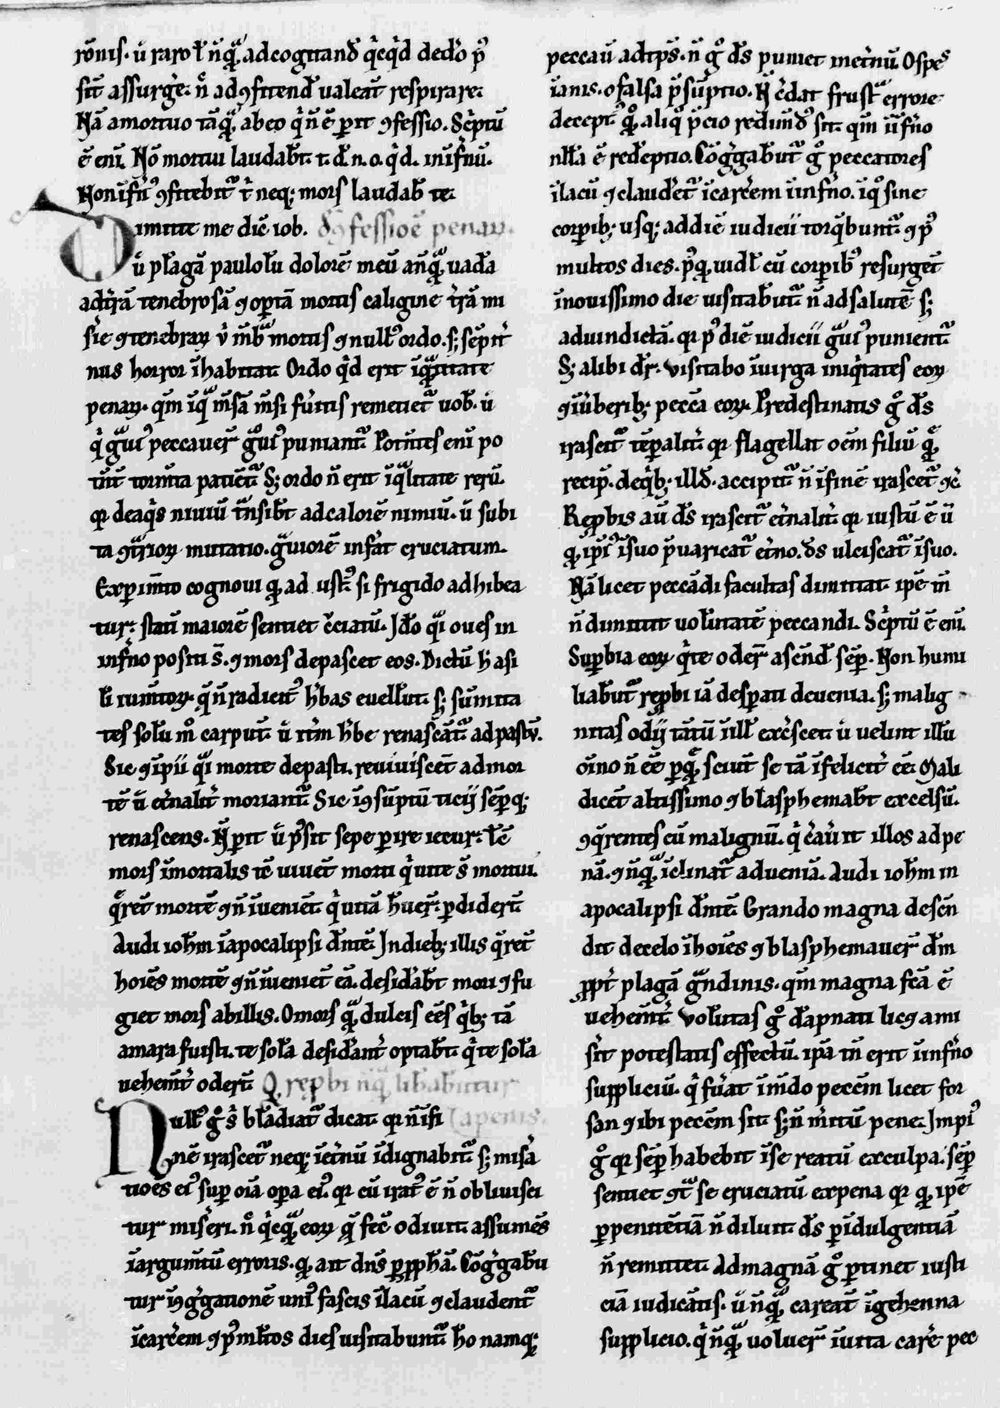 ronis. ù raro ł nq̃ ad cogitand qcqd dedo p
sit assurge. n̄ ad 9fitend ualeat respirare.
Nā amortuo tāq̃ ab eo q n̄ ē perit 9fessio. Scptū
ē eni. Nō mortui laudabt t. d n. o. q d. inifnū.
Non ifn 9fitebit t neq; mors laudab te.
Dimitte me dic iob. 9fessioē penar.
ù plagā paululū dolorē meū anq̃ uada
ad trā tenebrosā 9optā mortis caligine trā mi
sie 9tenebrar v mb mortis 9null ordo. s; sēpit
nus horror ihabitat. Ordo qd erit iq̃ntitate
penar. qm iq̃ mēsā mēsi fūitis remetiet uob. ù
q gui peccauer gui puniant. Potentes eni po
tēt tormta patient. S; ordo n̄ erit iq̃litate rerū.
qr de aqs niuiū tnsibt ad calorē nimiū. ù subi
ta 9trior mutatio. guiorē infat cruciatum.
Experimto cognoui q ad ust si frigido adhibea
tur: statī maiorē sentiet cciatū. Ido qi oues in
infno positi s̄. 9 mors depascet eos. Dictū h asi
li iumtor. q n̄ radicit hbas euellūt. s; sūmita
tes solū m carpūt. ù itm hbe renascāt ad pastū.
Sic 9ipii qi morte depasti. reuiuiscēt ad mor
tē ù etnalit moriant. Sic 9sūptū ticij sēpq;
renascens. N perit ù psit sepe perire iecur: tē
mors imortalis tē uiuet morti q uite s̄ mortui.
qret mortē 9 n̄ iueniet q uitā huer: pdiderūt
Audi iohm iapocalipsi dntē. In dieb; illis qret
hoies mortē 9 n̄ iueniet eā. desidabt mori 9 fu
giet mors ab illis. O mors q̃ dulcis ees qb; tā
amara fuisti. te solā desidant optabt q te solā
uehemt oderūt. Q repbi nq̃ libabuntur
Null g s blādiat dicat qr n̄ ifi a penis.
nē irascet neq; ietnū idignabit s; misa
tioes ei sup oia opa ei. qr cū irat ē n̄ obliuisci
tur miseri. n qcq̃ eor q fec odiuit. assumēs
iargumtū erroris. q ait dns per pphā. Coggabū
tur i 9ggatione uni fascis ilacū 9claudent
icarcem 9 p mltos dies uisitabunt. ho namq;
peccaū ad tps. n̄ g ds puniet in etnū. O spes
ianis. o falsa psūptio. N cdat frust errore
decept q aliq pcio redimd sit. qm ī ifno
nlla ē redēptio. Coggabūt g peccatores
ilacū 9claudet icarcem i ifno. iq sine
corpib; usq; ad diē iudicii torqbunt. 9 p
multos dies. pq uidl cū corpib resurget
inouissimo die uisitabūt n̄ ad salutē s;
ad uindictā. qr p diē iudicii gui punient.
S; alibi dr. Visitabo i uirga iniqtates eor
9 iūberib; pecca eor. Predestinatis g ds
irascit tēpalit qr flagellat oēm filiū q
recip. de qb; illd. accipit n̄ ifinē irascet 9c
Repbis au ds irascit etnalit qr iustū ē ù
q ipi isuo puaricat etno. ds ulciscat isuo.
Nā licet peccādi facultas dimittat ipē m
n̄ dimittit uolūtatē peccandi. Scptū ē eni.
Supbia eor q te oder ascēd sēp. Non humi
liabūt repbi iā despati de uenia. s; malig
nitas odij tātū i illi excscet ù uelint illū
oino n̄ ēē per q̃ sciūt se tā ifelicit ēē. Mali
dicēt altissimo 9 blasphemabt excelsū.
9qrentes eū malignū. q cauit illos ad pe
nā. 9 nq̃ iclinat ad ueniā. Audi iohm in
apocalipsi dntē. Grando magna descn
dit de celo i hoies 9 blasphemauer dm
ppt plagā gndinis. qm magna fcā ē
uehemt. Voluntas g dapnati licȝ ami
sit potestatis effectū. ipā tn erit i ifno
suppliciū. q fuat i mdo pecem licet for
san 9 ibi pecem sit s; n̄ mitū pene. Impi
g qr sēp habebit i se reatū ex culpa. sēp
sentiet 9t se cruciatū ex pena qr q ipē
p penitētiā n̄ diluit ds p idulgentiā
n̄ remittet. Ad magnā g ptinet iusti
ciā iudicātis. ù nq̃ careat i gehenna
supplicio. q nq̃ uoluer i uita care pec